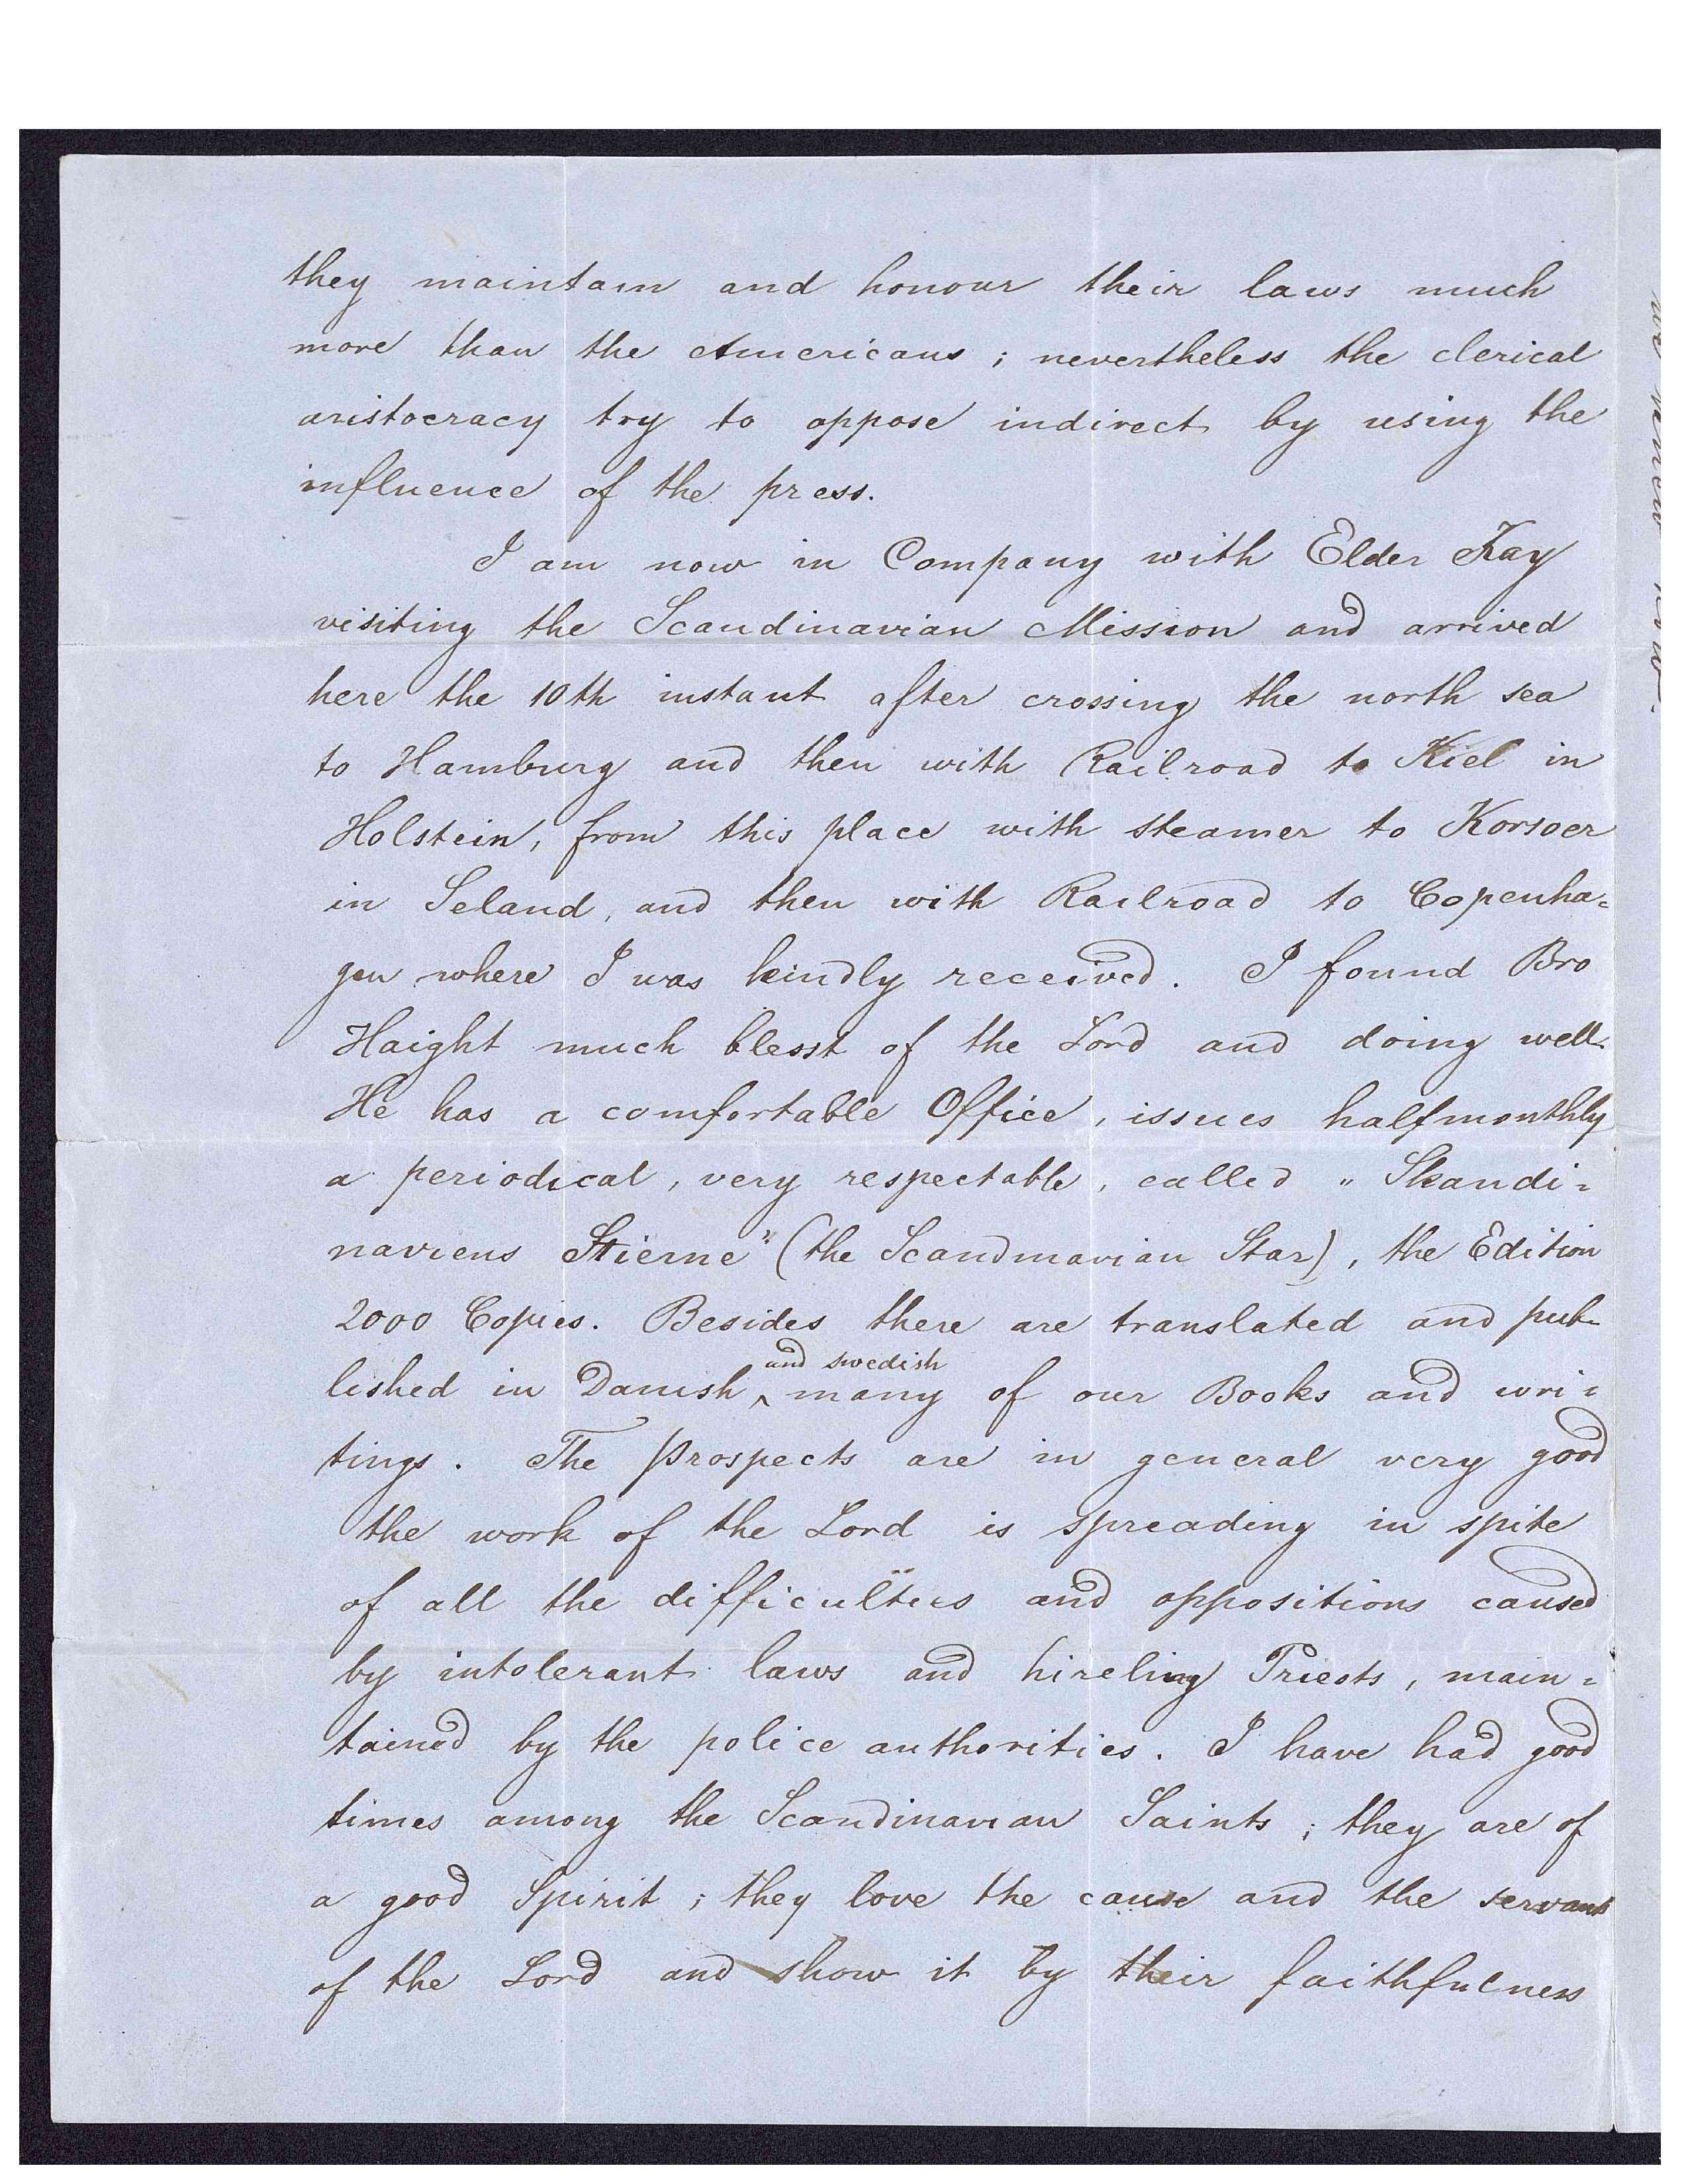 they maintain and honour their laws much
more than the Americans ; nevertheless the clerical
aristocracy try to oppose indirect by using the
influence of the press.
I am now in Company with Elder Kay
visiting the Scandinavian Mission and arrived
here the 10th instant after crossing the north sea
to Hamburg and then with Railroad to Kiel in
Holstein, from this place with steamer to Korsoer
in Seland, and then with Railroad to Copenha=
gen where I was kindly received. I found Bro
Haight much blesst of the Lord and doing well.
He has a comfortable Office, issues halfmonthly
a periodical, very respectable, called „ Skandi=
naviens Stierne" (the Scandinavian Star), the Edition
2000 Copies. Besides there are translated and pub-
and swedish
lished in Danish ^ many of our Books and wri=
tings. The prospects are in general very good
the work of the Lord is spreading in spite
of all the difficulties and oppositions caused
by intolerant laws and hireling Priests, main=
tained by the police authorities. I have had good
times among the Scandinavian Saints ; they are of
a good Spirit ; they love the cause and the servants
of the Lord and show it by their faithfulness